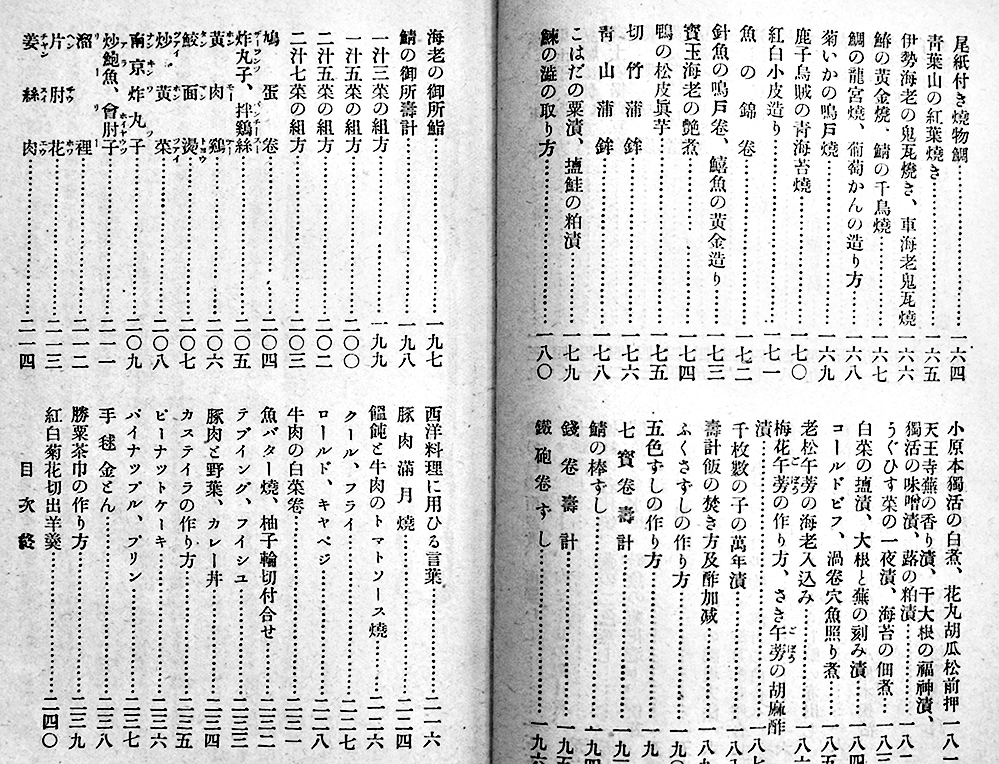 尾紙付き焼物鯛…………一六四
青葉山の紅葉焼き…………一六五
伊勢海老の鬼瓦焼き、車海老鬼瓦焼…………一六六
鰆の黄金焼、鯖の千鳥焼…………一六七
鯛の龍宮焼、葡萄かんの造り方…………一六八
菊いかの鳴戸焼…………一六九
鹿子烏賊の青海苔焼…………一七〇
紅白小皮造り…………一七一
魚の錦巻…………一七二
針魚の鳴戸巻、鱚魚の黄金造り…………一七三
寶玉海老の艶煮…………一七四
鴨の松皮眞芋…………一七五
切竹蒲鉾…………一七六
青山蒲鉾…………一七八
こはだの粟漬、塩鮭の粕漬…………一七九
鰊の澁の取り方…………一八〇
小原本獨活の白煮、花丸胡瓜松前押…一八
天王寺蕪の香り漬、干大根の福神漬、
獨活の味噌漬、蕗の粕漬…………一八
うぐひす菜の一夜漬、海苔の佃煮…一八三
白菜の塩漬、大根と蕪の刻み漬…一八四
コールドビフ、渦巻穴魚照り煮…一八五
老松午蒡の海老入込み…………一八六
梅花午蒡の作り方、さき午蒡の胡麻酢
漬…………一八七
千枚数の子の萬年漬…………一八
壽計飯の焚き方及酢加减…………一八
ふくさずしの作り方…………一九
五色ずしの作り方…………一九
七寶巻壽計…………一九
鯖の棒ずし…………一九四
錢巻壽計…………一九五
鐵砲巻ずし…………一九六
海老の御所鮨…………一九七
鯖の御所壽計…………一九八
一汁三菜の組方…………一九九
一汁五菜の組方…………二〇〇
二汁五菜の組方…………二〇二
二汁七菜の組方…………二〇三
鳩蛋巻…………二〇四
炸丸子、拌鷄絲…………二〇五
黄肉鷄…………二〇六
鮫面湯…………二〇七
炒黄菜…………二〇八
南京炸丸子…………二〇九
炒鮑魚、會肘子…………二一一
溜裡…………二一二
片肘花…………二一三
姜絲肉…………二一四
西洋料理に用ひる言葉…………二一六
豚肉滿月焼…………二二四
饂飩と牛肉のトマトソース焼…………二二六
クール、フライ…………二二七
ロールド、キャベジ…………二二八
牛肉の白菜巻…………二三一
魚バター焼、柚子輪切付合せ…………二三二
テブイング、フイシユ…………二三三
豚肉と野葉、カレー丼…………二三四
カステイラの作り方…………二三五
ピーナットケーキ…………二三六
パイナップル、プリン…………二三七
手毬金とん…………二三八
勝栗茶巾の作り方…………二三九
紅白菊花切出羊羹…………二四〇
目次終